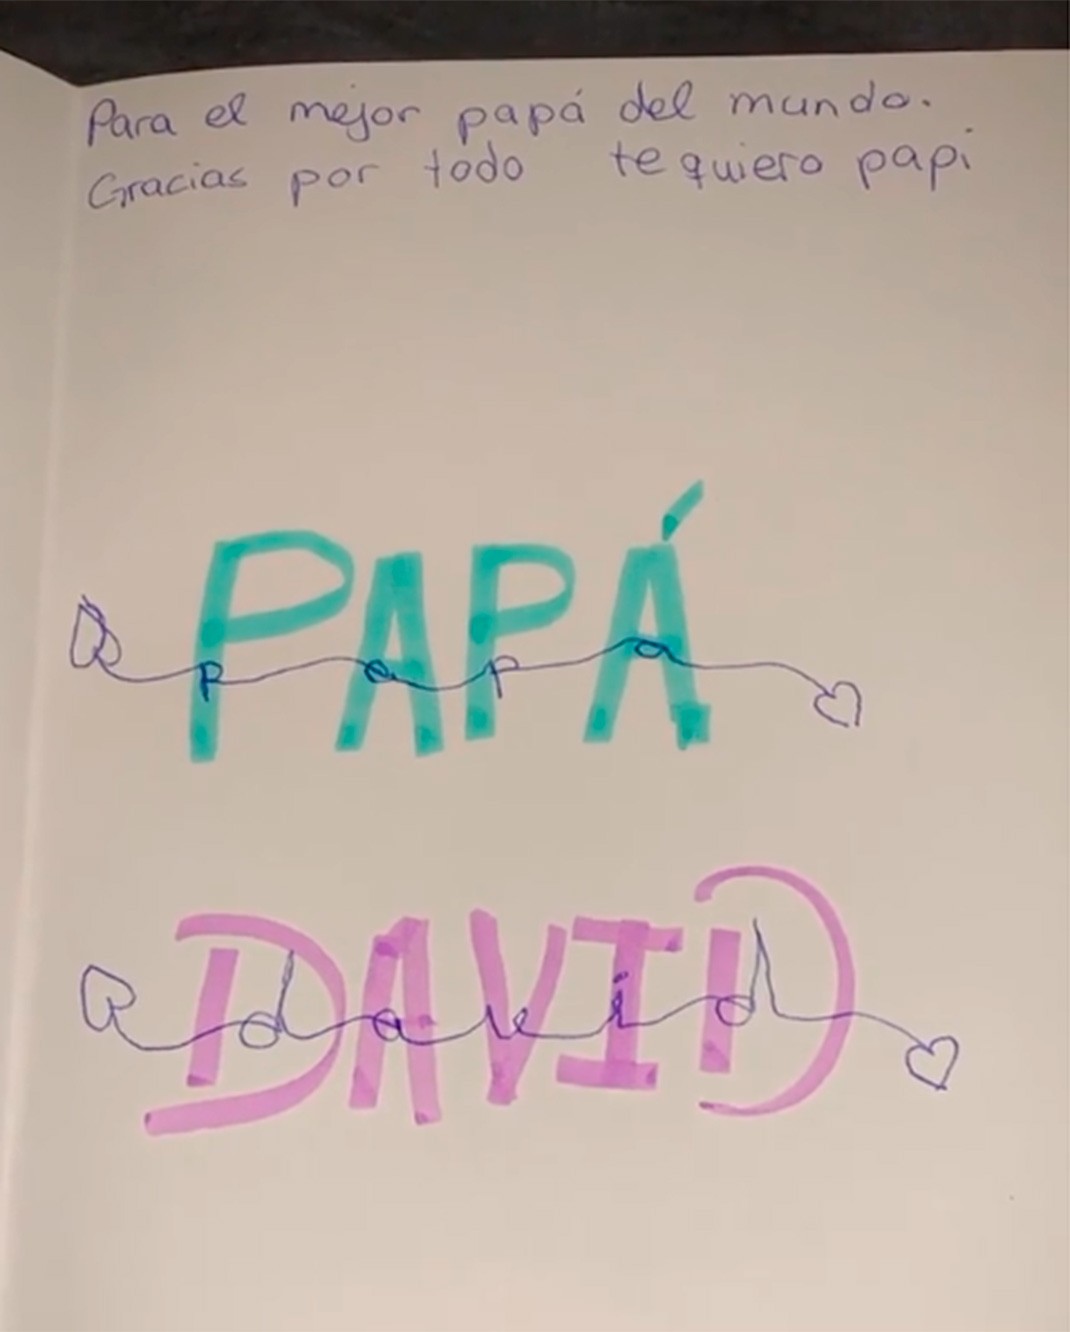 Para el mejor papá del mundo.
Gracias por todo te quiero papi
PAPÁ
papa
DAVID
david